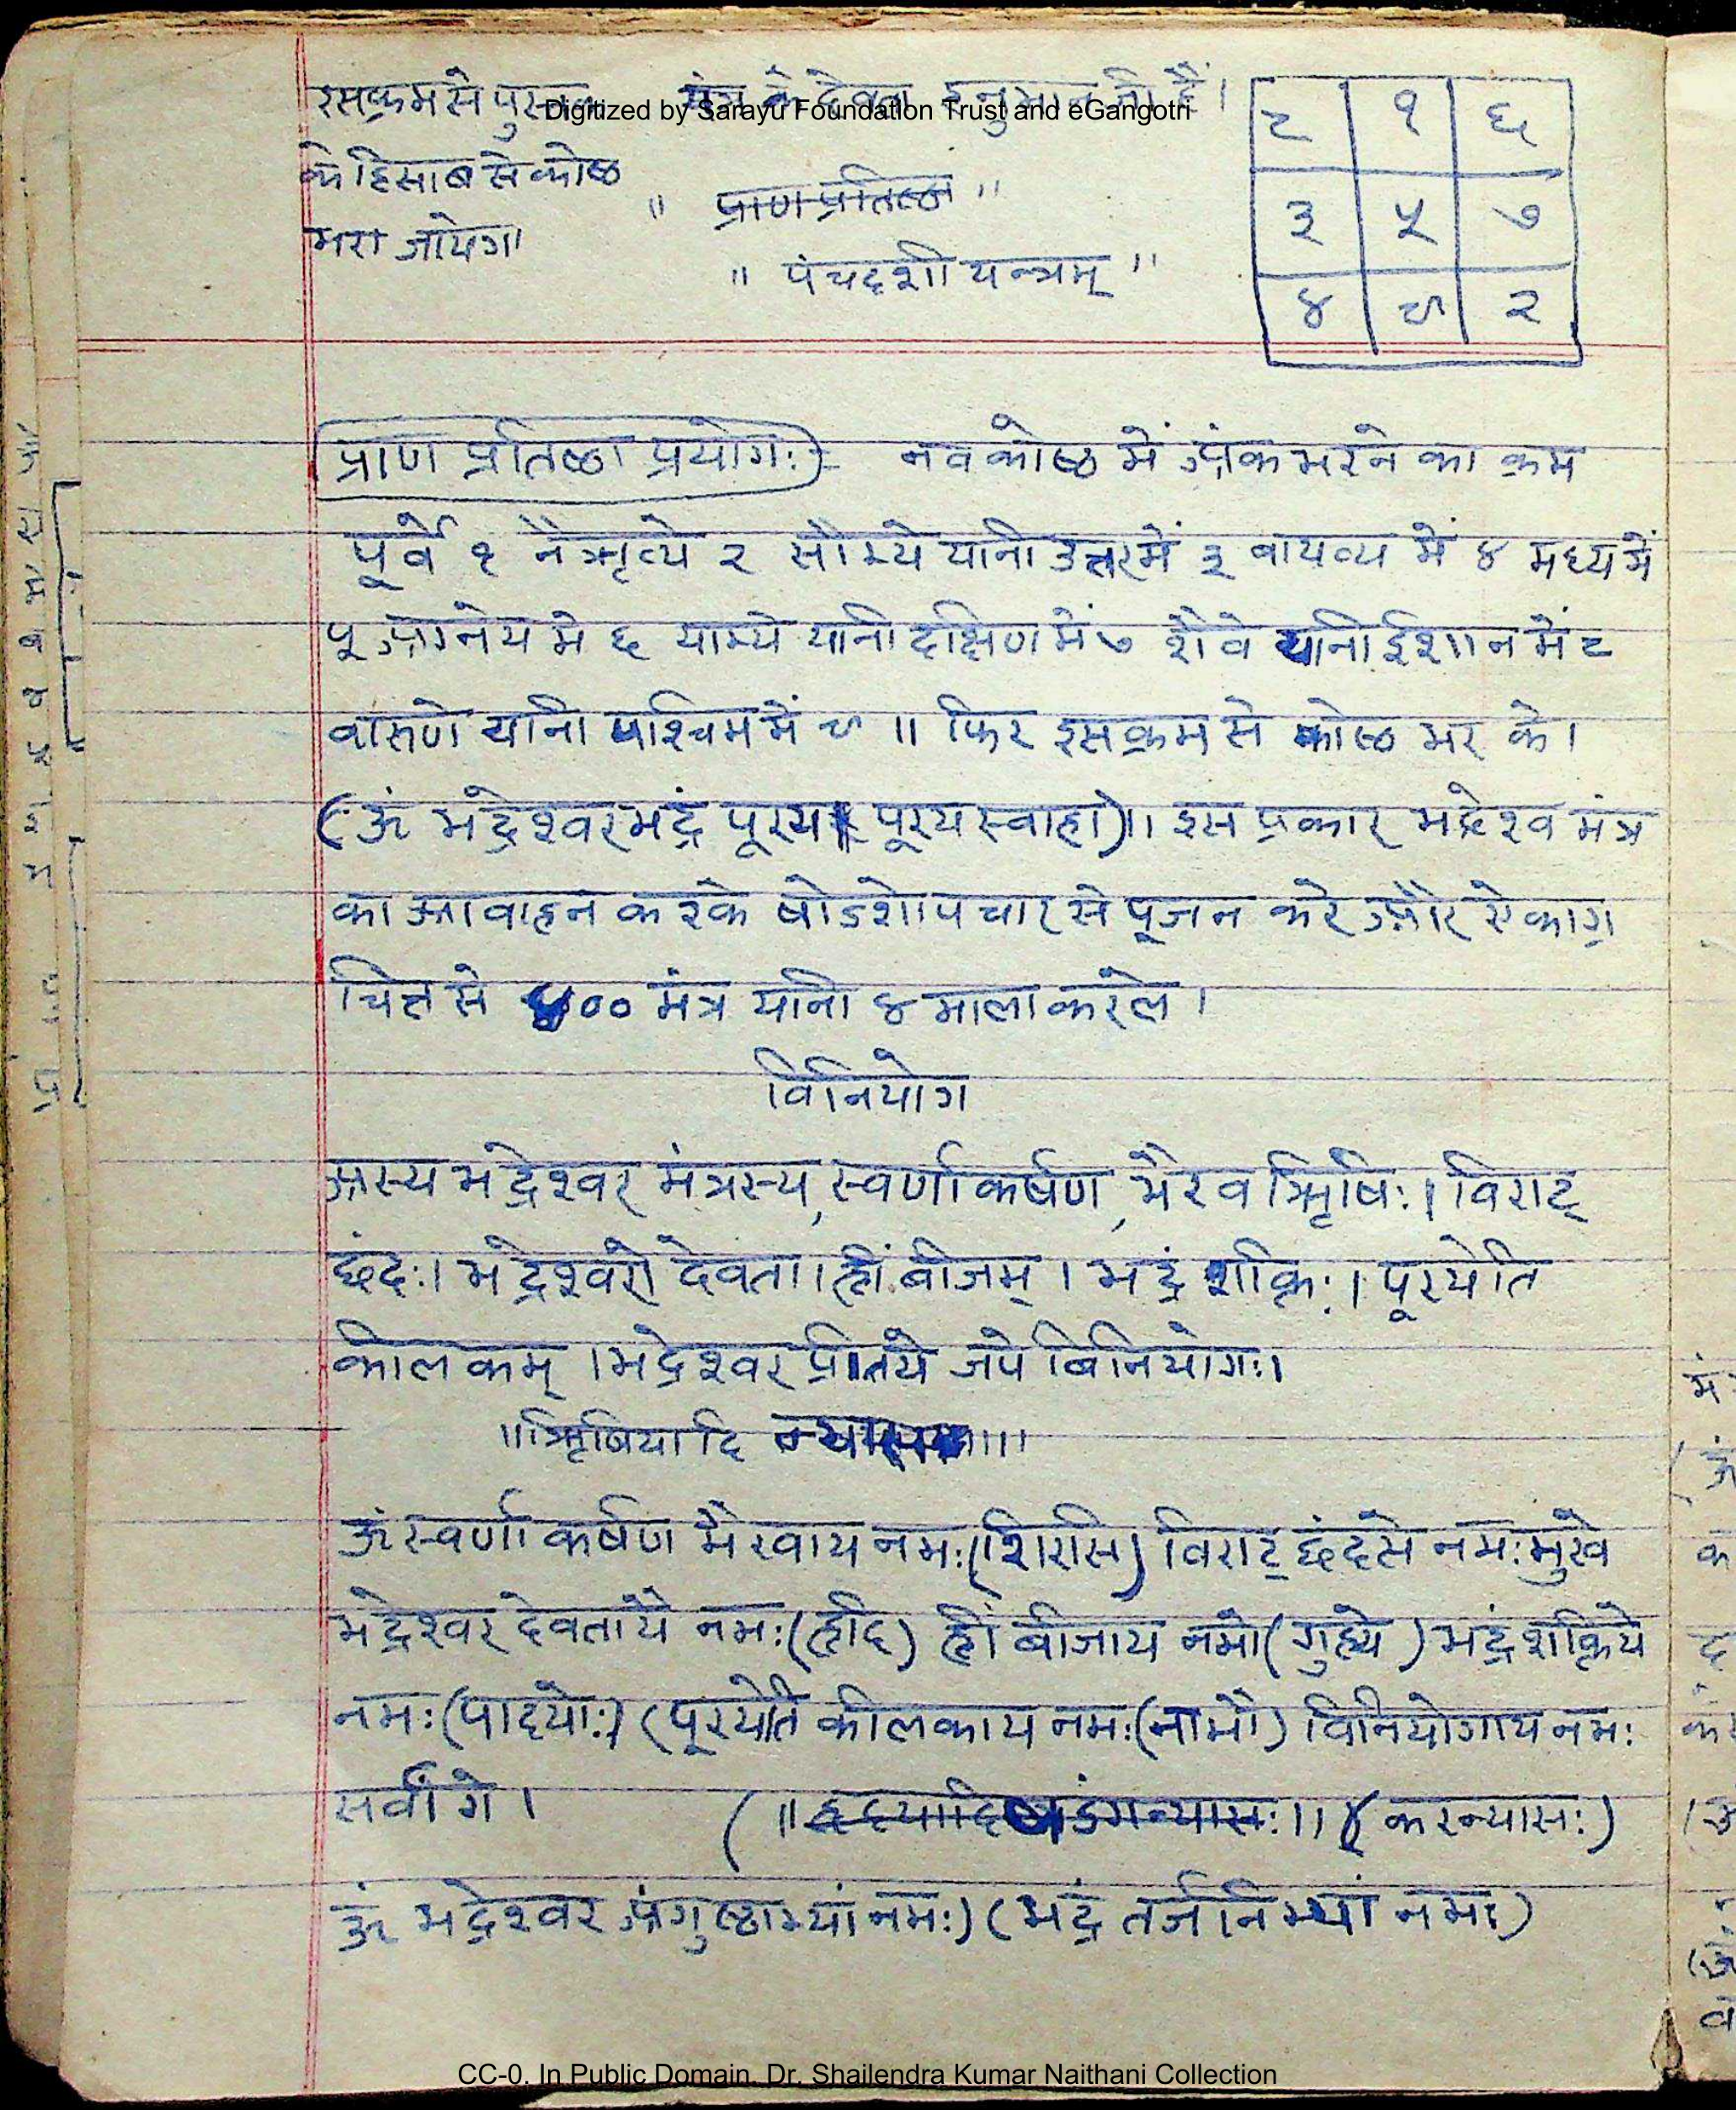 इसक्रम से यंत्र के देवता हनुमान जी हैं।
Digitized by Sarayu Foundation Trust and eGangotri
के हिसाब से कोष्ठ
भरा जायेगा
" प्राण प्रतिष्ठा "
" पंचदशी यन्त्रम् "
८ १ ६
३ ५ ७
४ ९ २
प्राण प्रतिष्ठा प्रयोगः)- नव कोष्ठ में अंक भरने का क्रम
पूर्वे १ नैॠत्ये २ सौम्ये यानी उत्तर में ३ वायव्य में ४ मध्य में
५ आग्नेय मे ६ याम्ये यानी दक्षिण में ७ शैवे यानी ईशान में ८
वारुणे यानी पश्चिम में ९ ॥ फिर इस क्रम से कोष्ठ भर के।
(ॐ भद्रेश्वर भद्रं पूरय पूरय स्वाहा)॥ इस प्रकार भद्रेश्व मंत्र
का आवाहन करके षोडशोपचार से पूजन करे और ऐकाग्र
चित्त से ४०० मंत्र यानी ४ माला करले।
विनियोग
अस्य भद्रेश्वर मंत्रस्य, स्वर्णाकर्षण, भैरव ॠिषिः। विराट्
छंदः। भद्रेश्वरो देवता। ह्रीं बीजम्। भद्रं शक्तिः। पूरयेति
कीलकम्। भद्रेश्वर प्रीतये जपे विनियोगः।
॥ॠिषियादि ॥
ॐ स्वर्णाकर्षण भैरवाय नमः(शिरसि) विराट् छंदसे नमः मुखे
भद्रेश्वर देवतायै नमः(ह्रदि) ह्रीं बीजाय नमो(गुह्ये) भद्रं शक्तिये
नमः(पादयोः) (पूरयेति कीलकाय नमः(नाभौ) विनियोगाय नमः
सर्वांगे। (॥ह्रदयादि षडंगन्यासः॥) (करन्यासः)
ॐ भद्रेश्वर अंगुष्ठाभ्यां नमः) (भद्रं तर्जनिभ्यां नमः)
CC-0. In Public Domain. Dr. Shailendra Kumar Naithani Collection